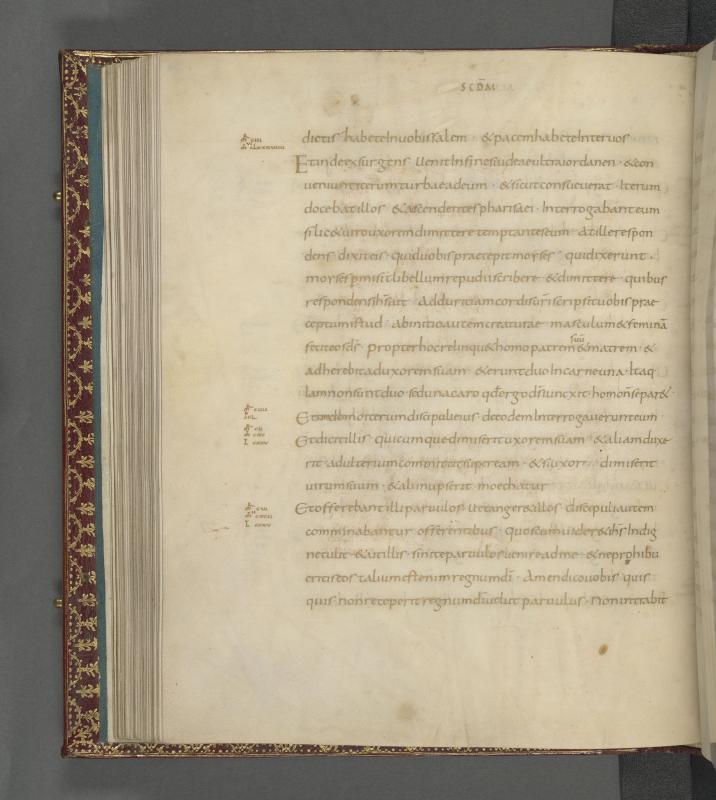 SCDM
dietis habete In vobis salem · & pacem habete Inter vos
Et inde exsurgens uenit In fines iudeae ultra iordanen · & con
ueniunt iterum turbae ad eum · & sicut consueuerat Iterum
docebat illos & accendentes pharisaei · Interrogabant eum
si lic& uiro uxorem dimittere temptantes eum At ille respon
dens dixit eis quid uobis praecepit moyses qui dixerunt ·
moyses pmisit libellum repudii scribere & dimittere · quibus
respondens ihs ait Ad duritiam cordis uri scripsit uobis prae
ceptum istud · ab initio autem creaturae masculum & feminā
fecit eos ds propter hoc relinqu& homo patrem suū & matrem · &
adherebit ad uxorem suam & erunt duo In carne una · Itaq
Iam non sunt duo sed una caro qd ergo ds iunxit homo nsepar&
Et In domo iterum discipuli eius de eodem Interrogauerunt eum
Et dicit illis quicumque dimiserit uxorem suam & aliam duxe
rit · adulterium committit super eam · & si uxor dimiserit
uirum suum · & alii nupserit moechatur
Et offerebant illi paruulos ut tanger& illos discipuli autem
comminabantur offerentibus · quos cum uider& ihs Indig
ne tulit & ait illis · sinite paruulos uenire ad me · & ne prohibu
eritis eos talium est enim regnum dī · Amen dico uobis quis
quis non receperit regnum dī uelut paruulus · Non intrabit